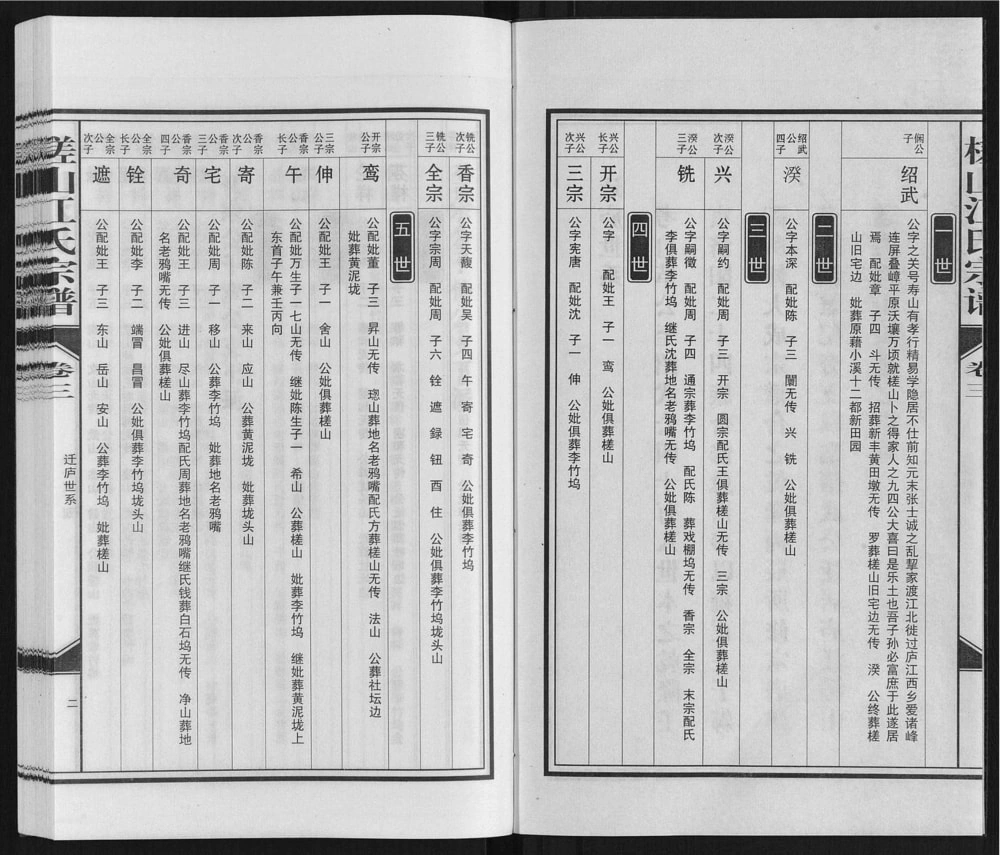 槎山江氏宗谱
卷三
一世
侗公
子
绍武
公字之关号寿山有孝行精易学隐居不仕前知元末张士诚之乱挈家渡江北徙过庐江西乡爱诸峰
连屏叠嶂平原沃壤万顷就槎山卜之得家人之九四公大喜曰是乐土也吾子孙必富庶于此遂居
焉 配妣章 子四 斗无传 招葬新丰黄田墩无传 罗葬槎山旧宅边无传 湀 公终葬槎
山旧宅边 妣葬原籍小溪十二都新田园
二世
绍武
公
四子
湀
公字本深 配妣陈 子三 闇无传 兴 铣 公妣俱葬槎山
三世
湀公
次子
兴
公字嗣约 配妣周 子三 开宗 圆宗配氏王俱葬槎山无传 三宗 公妣俱葬槎山
湀公
三子
铣
公字嗣徵 配妣周 子四 通宗葬李竹坞 配氏陈 葬戏棚坞无传 香宗 全宗 末宗配氏
李俱葬李竹坞 继氏沈葬地名老鸦嘴无传 公妣俱葬槎山
四世
兴公
长子
开宗
公字 配妣王 子一 鸾 公妣俱葬槎山
兴公
次子
三宗
公字宪唐 配妣沈 子一 伸 公妣俱葬李竹坞
铣公
次子
香宗
公字天馥 配妣吴 子四 午 寄 宅 奇 公妣俱葬李竹坞
铣公
三子
全宗
公字宗周 配妣周 子六 铨 遮 録 钮 酉 住 公妣俱葬李竹坞垅头山
五世
开宗
公子
鸾
公配妣董 子三 昇山无传 璁山葬地名老鸦嘴配氏方葬槎山无传 法山 公葬社坛边
妣葬黄泥垅
三宗
公子
伸
公配妣王 子一 舍山 公妣俱葬槎山
香宗
公
长子
午
公配妣万生子一七山无传 继妣陈生子一 希山 公葬槎山 妣葬李竹坞 继妣葬黄泥垅上
东首子午兼壬丙向
香宗
公
次子
寄
公配妣陈 子二 来山 应山 公葬黄泥垅 妣葬垅头山
香宗
公
三子
宅
公配妣周 子一 移山 公葬李竹坞 妣葬地名老鸦嘴
香宗
公
四子
奇
公配妣王 子三 进山 尽山葬李竹坞配氏周葬地名老鸦嘴继氏钱葬白石坞无传 净山葬地
名老鸦嘴无传 公妣俱葬槎山
全宗
公
长子
铨
公配妣李 子二 端冒 昌冒 公妣俱葬李竹坞垅头山
全宗
公
次子
遮
公配妣王 子三 东山 岳山 安山 公葬李竹坞 妣葬槎山
槎山江氏宗谱
卷三
迁庐世系
二